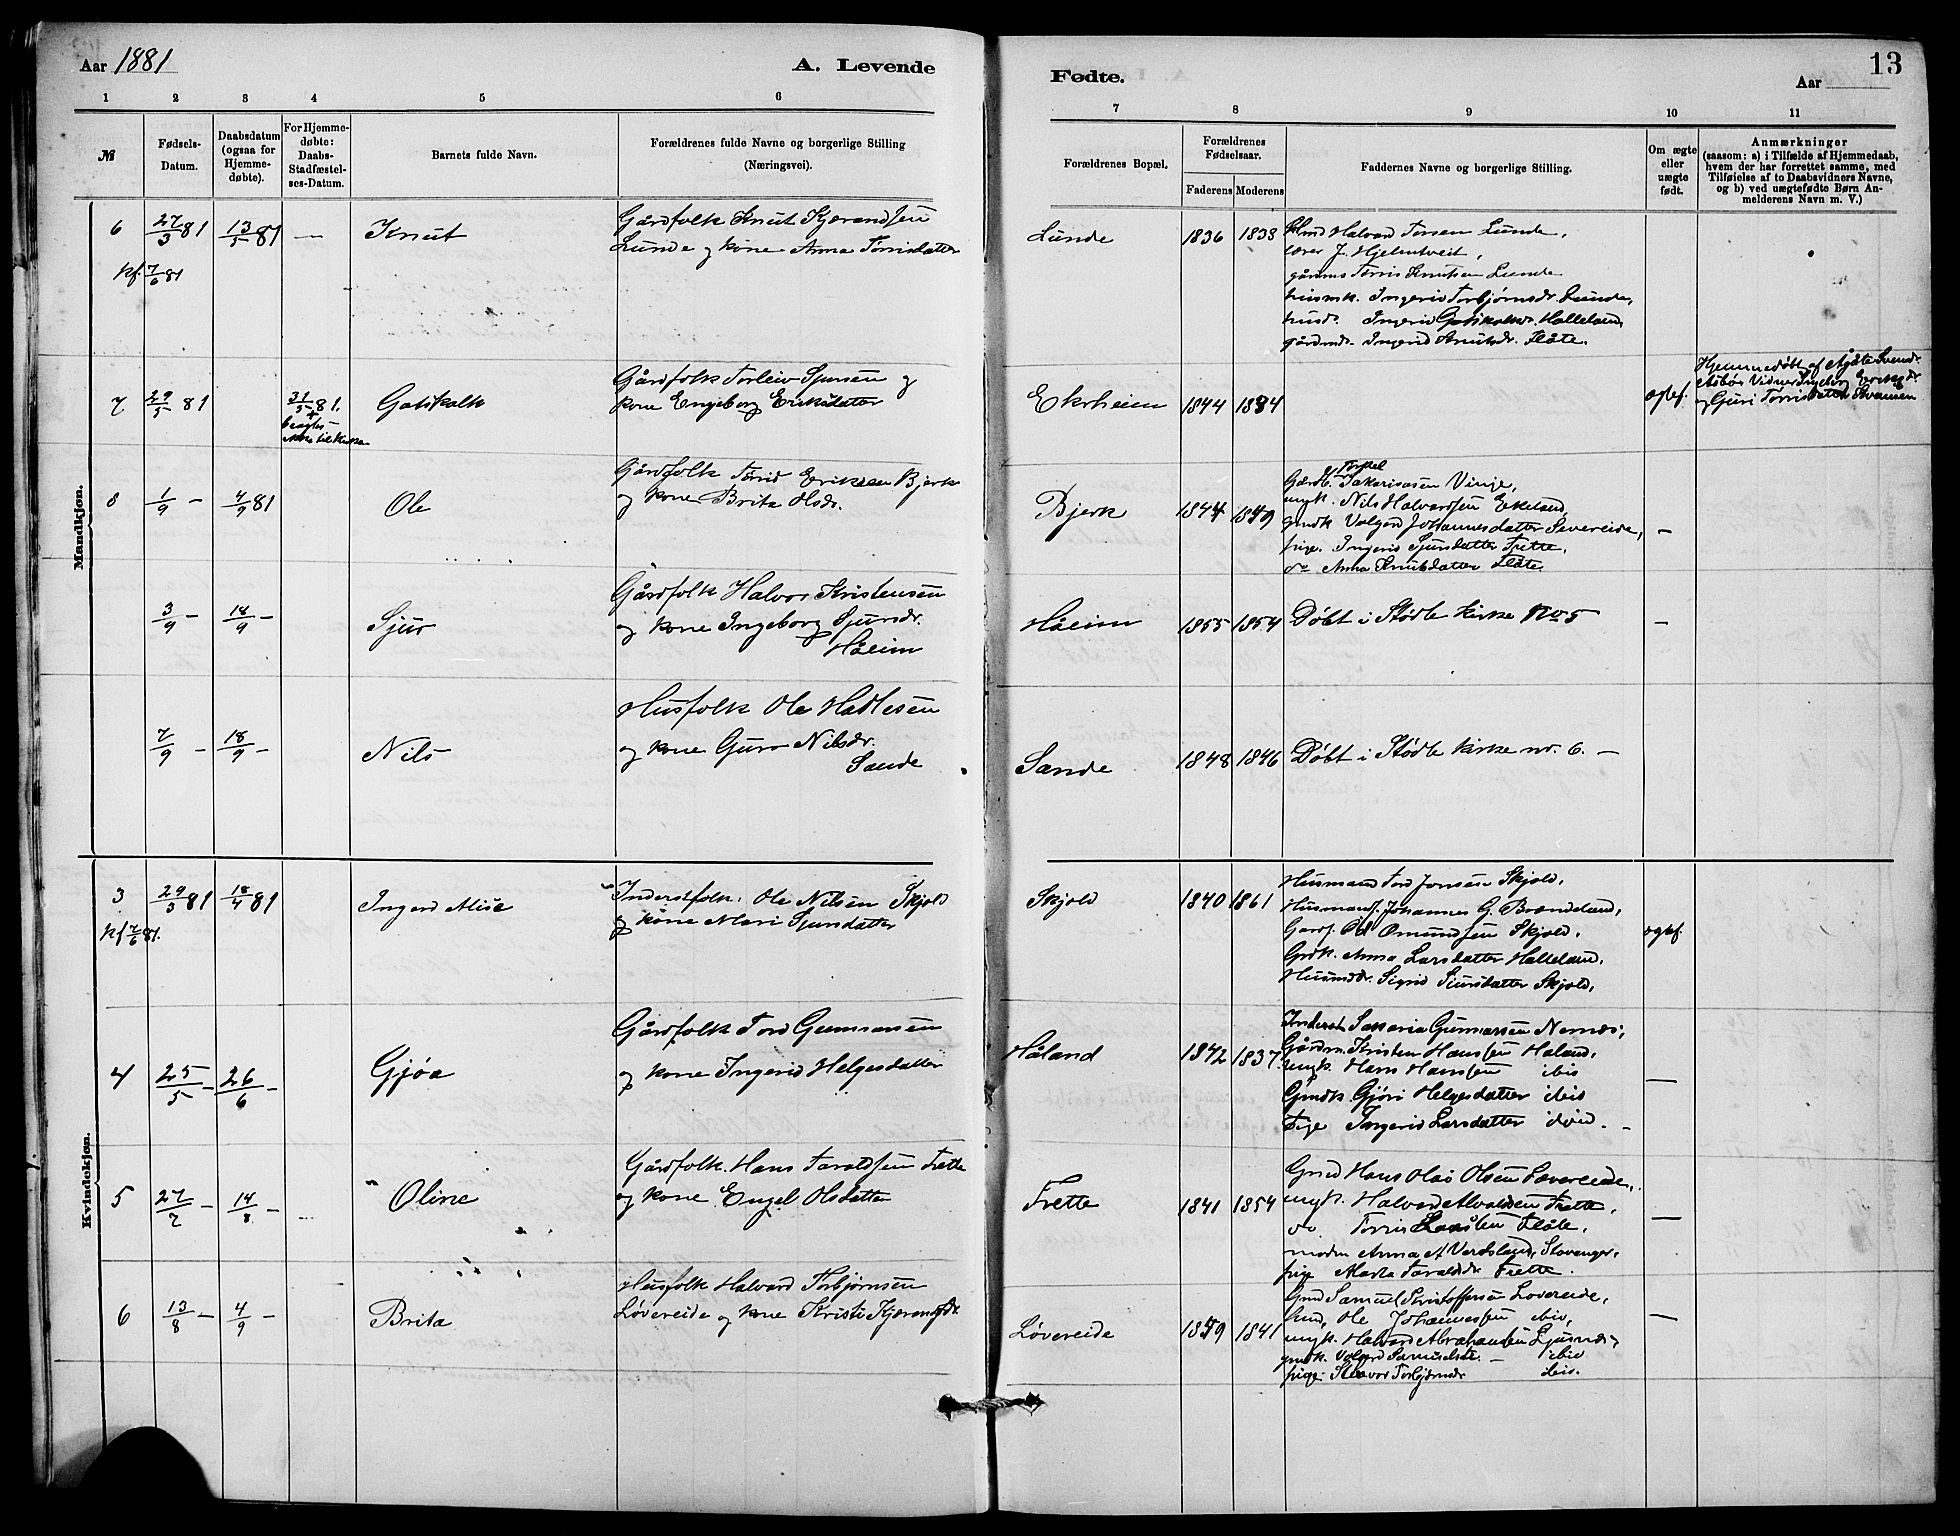 Aar 1881
A. Levende
Fødte.
13
Aar
1 2 3 4 5 6 7 8 9 10 11
№
Fødsels-
Datum.
Daabsdatum
(ogsaa for
Hjemme-
døbte).
For Hjemme-
døbte:
Daabs-
Stadfæstel-
ses-Datum.
Barnets fulde Navn.
Forældrenes fulde Navne og borgerlige Stilling
(Næringsvei).
Forældrenes Bopæl.
Forældrenes
Fødselsaar.
Faderens Moderens
Faddernes Navne og borgerlige Stilling.
Om ægte
eller
uægte
født.
Anmærkninger
(saasom: a) i Tilfælde af Hjemmedaab,
hvem der har forrettet samme, med
Tilføielse af to Daabsvidners Navne,
og b) ved uægtefødte Børn An-
melderens Navn m. V.)
Mandkjøn.
6 27/3 81 13/5 81 — Knut
kf. 7/6 81
Gårdfolk Knut Kjerandsen
Lunde og kone Anna Torrisdatter
Lunde 1836 1838
Halvard Torsen Lunde,
lærer J. Hjelmtveit,
Torris Knutsen Lunde
husmk. Ingerid Torbjørnsdr. Lunde,
Ingerid Halleland,
Ingerid Knutsdr. Flåte.
7 29/5 81 31/5 81. Gotskalk
Gårdfolk Torleiv Sjursen og
kone Engeborg Eriksdatter
Ekrheim 1844 1834
Hjemmedøbt af
og Guri Torrisdatter
8 1/9 — 4/9 81 Ole
Gårdfolk Torris Eriksen Bjerk
og kone Brita Olsdr.
Bjerk 1844 1849
Gårdb. Torkel Sakariasen Vinje,
ungk. Nils Halvardsen Ekeland,
gmdk Valgerd Johannesdatter Løvereide,
pige. Ingerid Sjursdatter Frette,
do Anna Knutsdatter Flåte. —
3/9 — 18/9 — Sjur
Gårdfolk Halvor Kristensen
og kone Ingeborg Sjursdr.
Håeim
Håeim 1855 1854 Døbt i Stødle kirke No 5 —
7/9 — 18/9 — Nils
Husfolk Ole Hadlesen
og kone Guro Nilsdr.
Sande
Sande 1848 1846 Døbt i Stødle kirke nr. 6. —
Kvindekjøn.
3 29/3 81 18/4 81 Ingerd Alise
kf 7/6 81.
Inderstfolk: Ole Nilsen Skjold
og kone Mari Sjursdatter
Skjold 1840 1861
Husmand Tord Jonsen Skjold,
Husmandf. Johannes G. Brandeland,
Gardf. Omundsen Skjold,
Grdk. Anna Larsdatter Halleland,
Husmdr. Sigrid Sjursdatter Skjold,
4 25/5 — 26/6 — Gjøa
Gårdfolk Tord Gunnarsen
og kone Ingerid Helgesdatter
Håland 1842 1837
Inderst Sakaria Gunnarsen Nernæs,
Gårdm. Kristen Hansen Håland,
ungk. Hans Hansen ibid
Gmdk. Gjøri Helgesdatter ibid
Pige Ingerid Larsdatter ibid. —
5 27/7 — 14/8 — Oline
Gårdfolk. Hans Taraldsen Frette
og kone Engel Olsdatter
Frette 1841 1854
Gmd Hans Olai Olsen Løvereide,
ungk. Halvard Frette,
do Torris Larsen Flåte,
Anna af Verdsland, Stavanger,
pige Marta Taraldsdr. Frette. —
6 13/8 — 4/9 — Brita
Husfolk Halvard Torbjørnsen
Løvereide og kone Kristi Kjerandsdr
Løvereide 1859 1841
Gmd Samuel Kristoffersen Løvereide,
Ole Johannessen ibid,
ungk. Halvard Abrahamsen Ljusnæs,
gmdk. Valgerd Samuelsdtr. — ibid
pige. Torbjørnsdr ibid. —